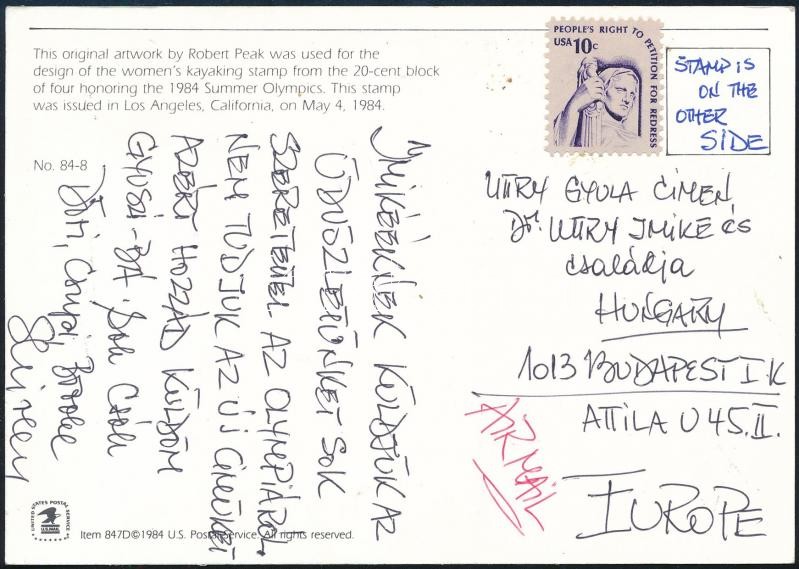 This original artwork by Robert Peak was used for the
design of the women's kayaking stamp from the 20-cent block
of four honoring the 1984 Summer Olympics. This stamp
was issued in Los Angeles, California, on May 4, 1984.
No. 84-8
IMIKÉÉKNEK KÜLDJÜK AZ
ÜDVÖZLETÜNKET SOK
SZERETETTEL AZ OLYMPIÁRÓL.
NEM TUDJUK AZ ÚJ CÍMÜKET
AZÉRT HOZZÁD KÜLDÖM
GYUSZI-BÁ. SOK CSÓK
PEOPLE'S RIGHT TO PETITION FOR REDRESS
USA 10c
STAMP IS
ON THE
OTHER
SIDE
UTRY GYULA CÍMEN,
Dr. UTRY IMIKE és
családja
HUNGARY
1013 BUDAPEST I. K
ATTILA U 45. II.
AIR MAIL
EUROPE
UNITED STATES POSTAL SERVICE
U.S. MAIL
Item 847D © 1984 U.S. Postal Service. All rights reserved.